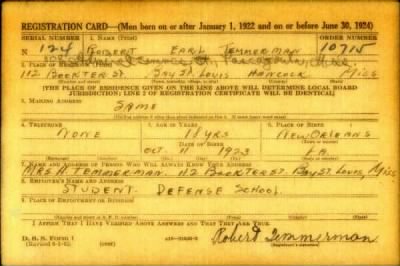 REGISTRATION CARD—(Men born on or after January 1, 1922 and on or before June 30, 1924)
SERIAL NUMBER 1. NAME (Print) ORDER NUMBER
N 124 ROBERT EARL TEMMERMAN 10715
Pascagoula, Miss.
2. PLACE OF RESIDENCE (Print)
112 BOOKTER ST. BAY ST. LOUIS HANCOCK MISS
[THE PLACE OF RESIDENCE GIVEN ON THE LINE ABOVE WILL DETERMINE LOCAL BOARD
JURISDICTION; LINE 2 OF REGISTRATION CERTIFICATE WILL BE IDENTICAL]
3. MAILING ADDRESS
SAME
4. TELEPHONE 5. AGE IN YEARS 6. PLACE OF BIRTH
NONE 18 YRS NEW ORLEANS
DATE OF BIRTH
OCT. 11 1923 LA.
7. NAME AND ADDRESS OF PERSON WHO WILL ALWAYS KNOW YOUR ADDRESS
MRS H. TEMMERMAN. 112 BOOKTER ST. BAY ST. LOUIS, MISS
8. EMPLOYER'S NAME AND ADDRESS
STUDENT- DEFENSE SCHOOL.
I AFFIRM THAT I HAVE VERIFIED ABOVE ANSWERS AND THAT THEY ARE TRUE.
D. S. S. FORM 1
Robert Temmerman